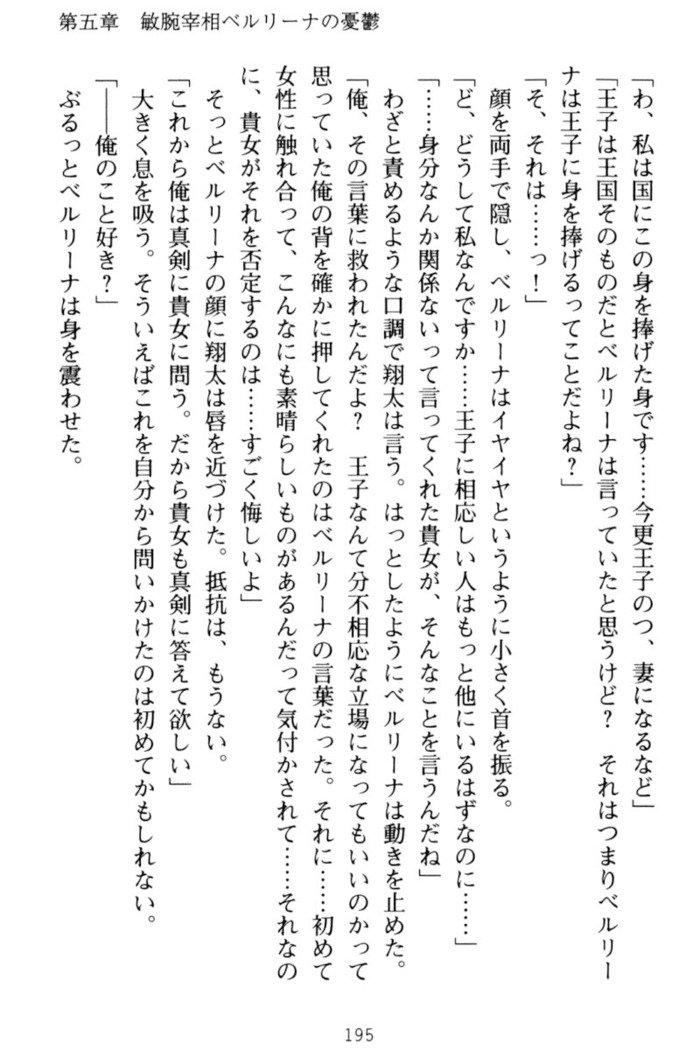 第五章　敏腕宰相ベルリーナの憂鬱
「わ、私は国にこの身を捧げた身です……今更王子のつ、妻になるなど」
「王子は王国そのものだとベルリーナは言っていたと思うけど？　それはつまりベルリー
ナは王子に身を捧げるってことだよね？」
「そ、それは……っ！」
　顔を両手で隠し、ベルリーナはイヤイヤというように小さく首を振る。
「ど、どうして私なんですか……王子に相応しい人はもっと他にいるはずなのに……」
「……身分なんか関係ないって言ってくれた貴女が、そんなことを言うんだね」
　わざと責めるような口調で翔太は言う。はっとしたようにベルリーナは動きを止めた。
「俺、その言葉に救われたんだよ？　王子なんて分不相応な立場になってもいいのかって
思っていた俺の背を確かに押してくれたのはベルリーナの言葉だった。それに……初めて
女性に触れ合って、こんなにも素晴らしいものがあるんだって気付かされて……それなの
に、貴女がそれを否定するのは……すごく悔しいよ」
　そっとベルリーナの顔に翔太は唇を近づけた。抵抗は、もうない。
「これから俺は真剣に貴女に問う。だから貴女も真剣に答えて欲しい」
　大きく息を吸う。そういえばこれを自分から問いかけたのは初めてかもしれない。
「――俺のこと好き？」
　ぶるっとベルリーナは身を震わせた。
195